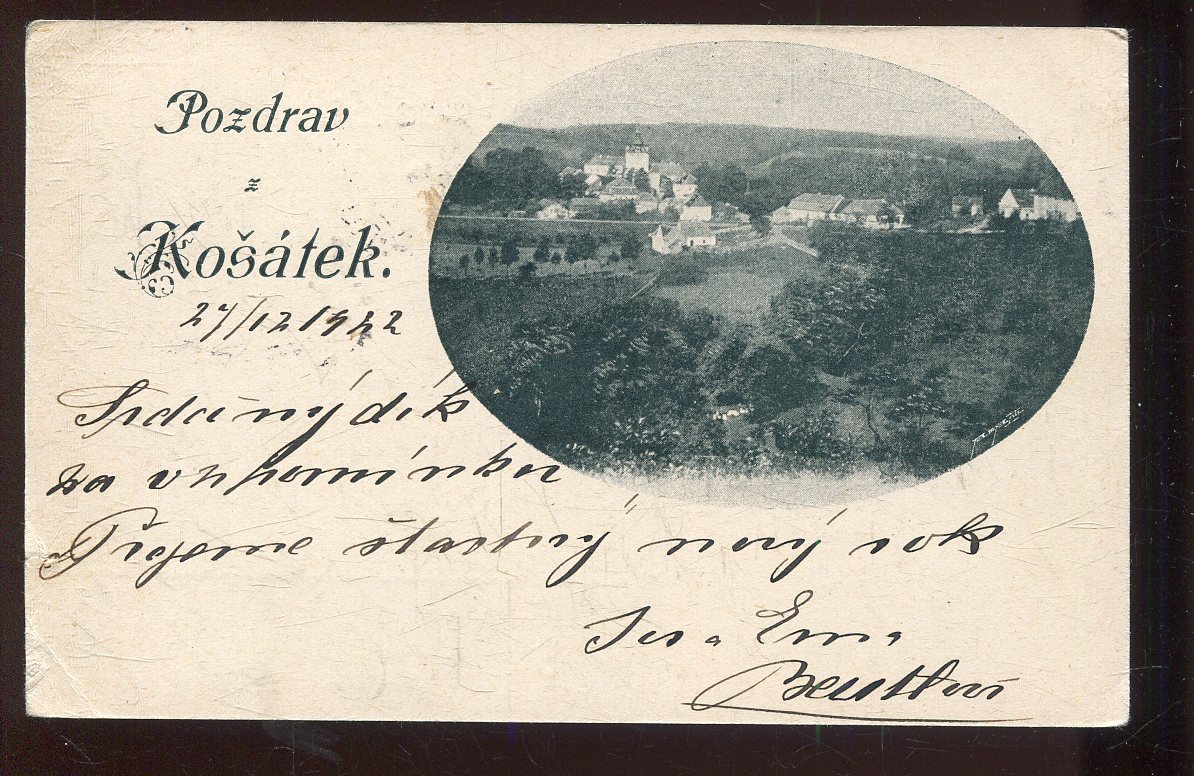 Pozdrav
z
Košátek.
27/12 1922
Srdčiný dík
za vzpomínku
Přejeme štastný nový rok
a Em.